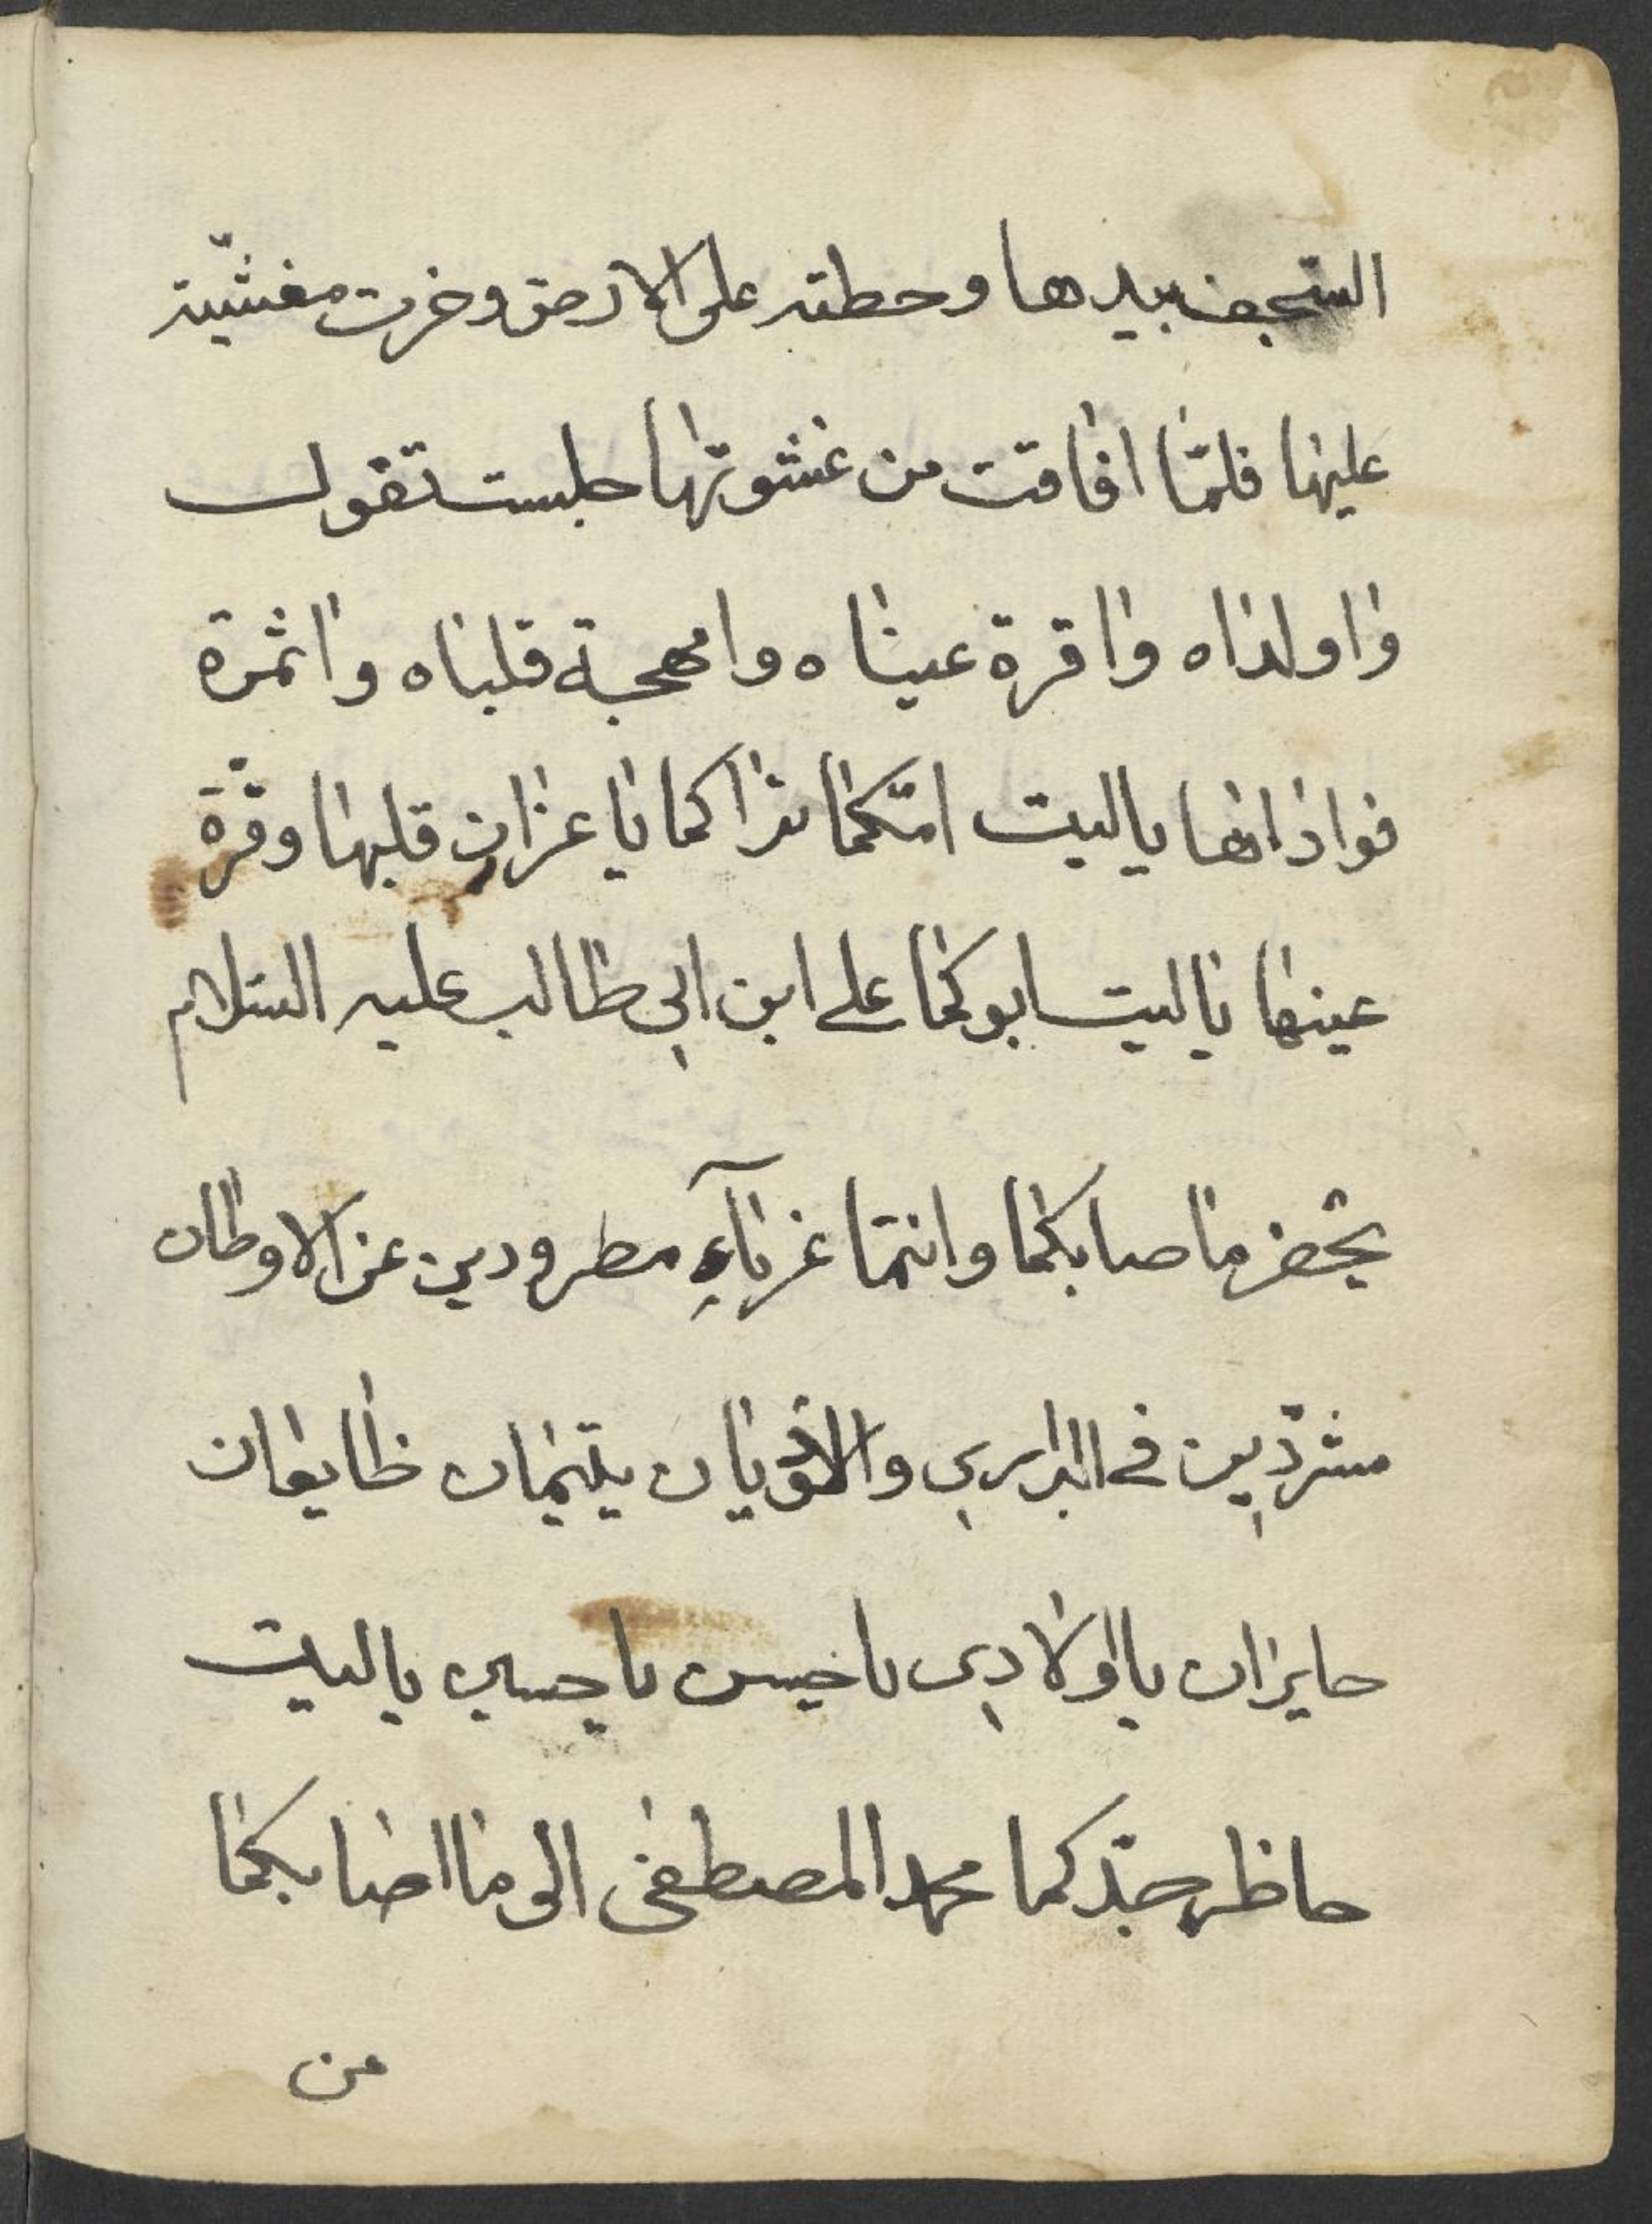 السجف بيدها وحطته على الارض وخرت مغشيّة
عليها فلمّا افاقت من غشوتها جلست تقول
وا ولداه وا قرة عيناه وا مهجة قلباه وا ثمرة
فواداها ياليت امّكما تراكما يا عزاز قلبها وقرّة
عينها ياليت ابوكما على ابن ابي طالب عليه السلام
يحضر ما صابكما وانتما غرباآءٍ مطرودين عن الاوطان
مشردّين في البراري والاوديان يتيمان ظايعان
حايران يا اولادي يا حسن يا حسين ياليت
حاظر جدّكما محمد المصطفى الى ما اصابكما
من